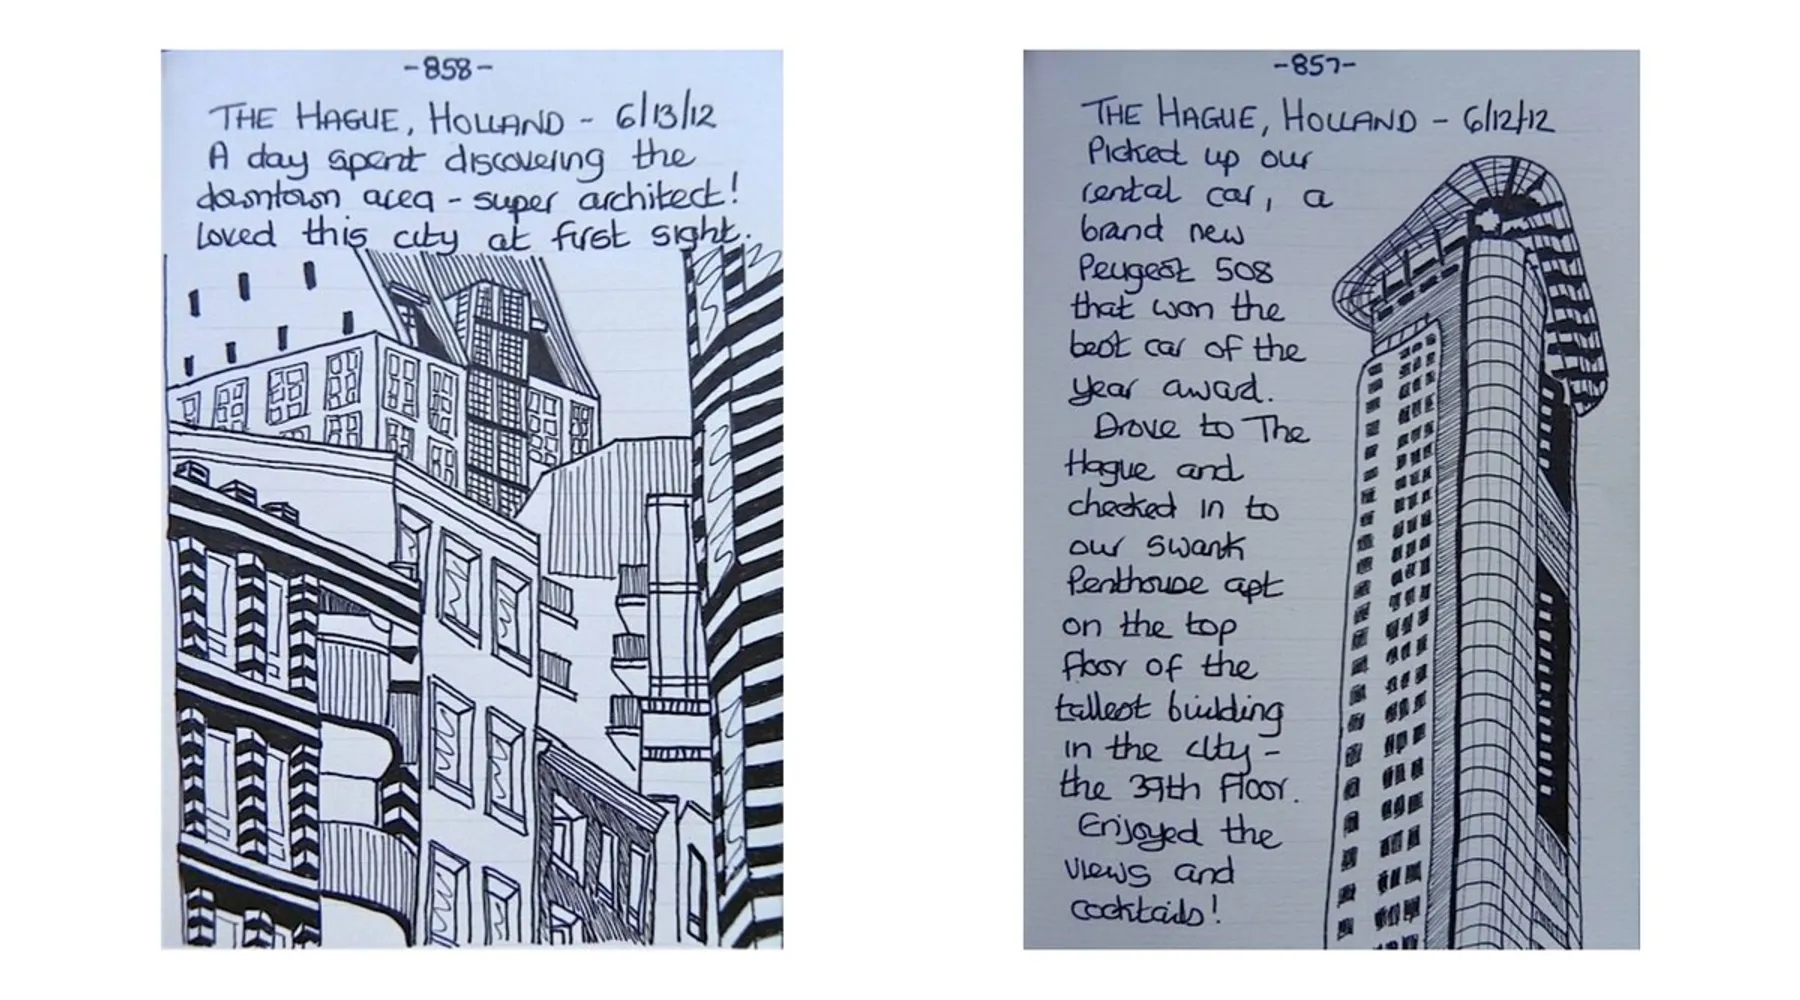 -858-
THE HAGUE, HOLLAND - 6/13/12
A day spent discovering the
downtown area - super architect!
Loved this city at first sight.
-857-
THE HAGUE, HOLLAND - 6/12/12
Picked up our
rental car, a
brand new
Peugeot 508
that won the
best car of the
year award.
Drove to The
Hague and
checked in to
our swank
Penthouse apt
on the top
floor of the
tallest building
in the city -
the 39th Floor.
Enjoyed the
views and
cocktails!